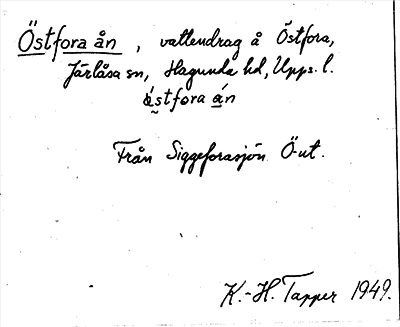 Östfora ån , vattendrag å Östfora,
Järlåsa sn, Hagunda hd, Upps. l.
östfora án
Från Siggeforasjön Ö-ut.
K.-H. Tapper 1949.